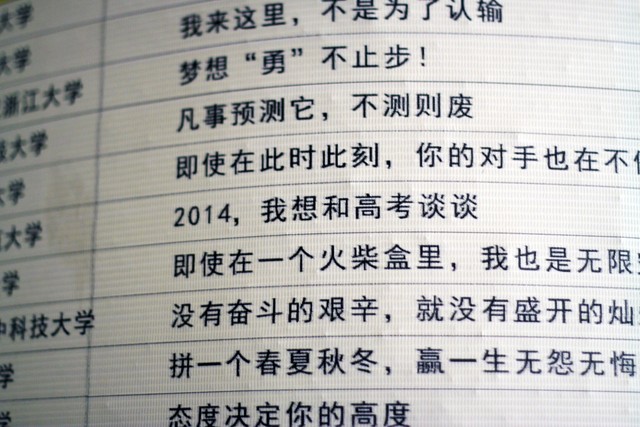 大学 我来这里，不是为了认输
大学 梦想“勇”不止步！
浙江大学 凡事预测它，不测则废
大学 即使在此时此刻，你的对手也在不
大学 2014，我想和高考谈谈
大学 即使在一个火柴盒里，我也是无限
学 没有奋斗的艰辛，就没有盛开的灿
中科技大学 拼一个春夏秋冬，赢一生无怨无悔
学 态度决定你的高度
学